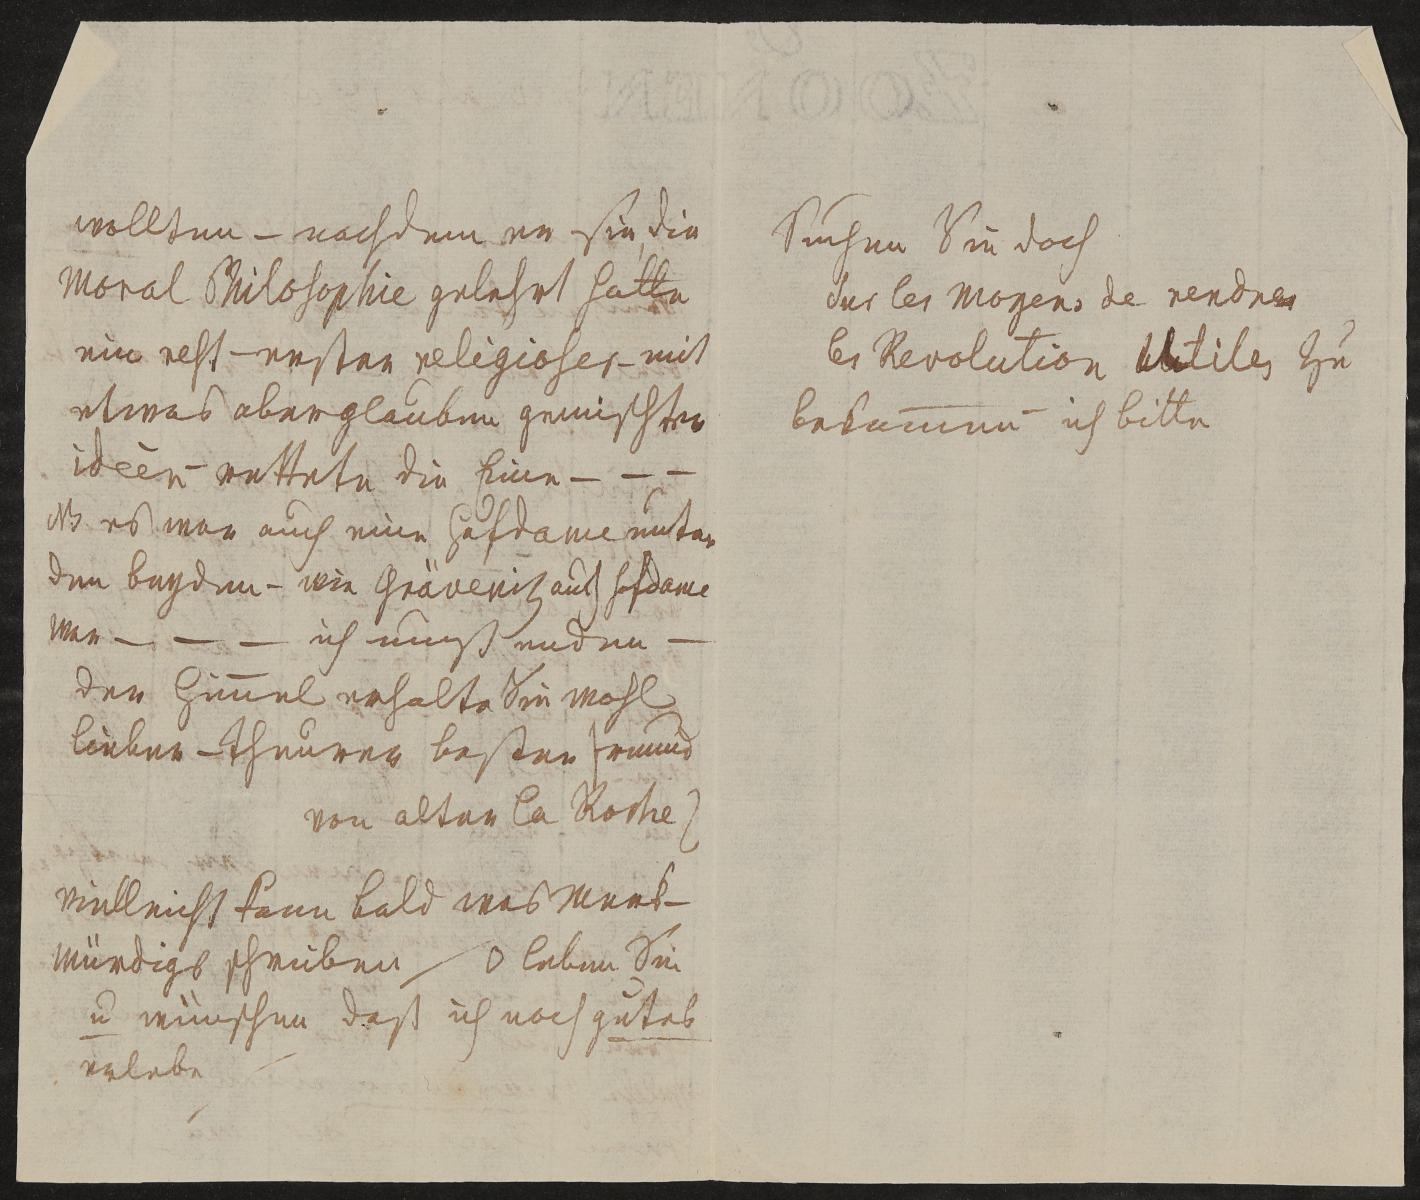 wollten – nachdem er sie die
Moral Philosophie gelehrt hatte
ein rest – erster religioser – mit
etwas aberglauben gemischter
idéen rettete die Eine – – –
NB es war auch eine Hofdame unter
den beyden – wie Grävenitz auch hofdame
war – – – ich muß enden –
der Him̅el erhalte Sie wohl
lieber – theurer bester freund
von alter La Roche
vielleicht kann bald was Merk-
würdigs schreiben / O leben Sie
u wünschen daß ich noch gutes
erlebe
Suchen Sie doch
Sur les Moyens de rendre
les Revolution Utiles zu
bekom̅en ich bitte